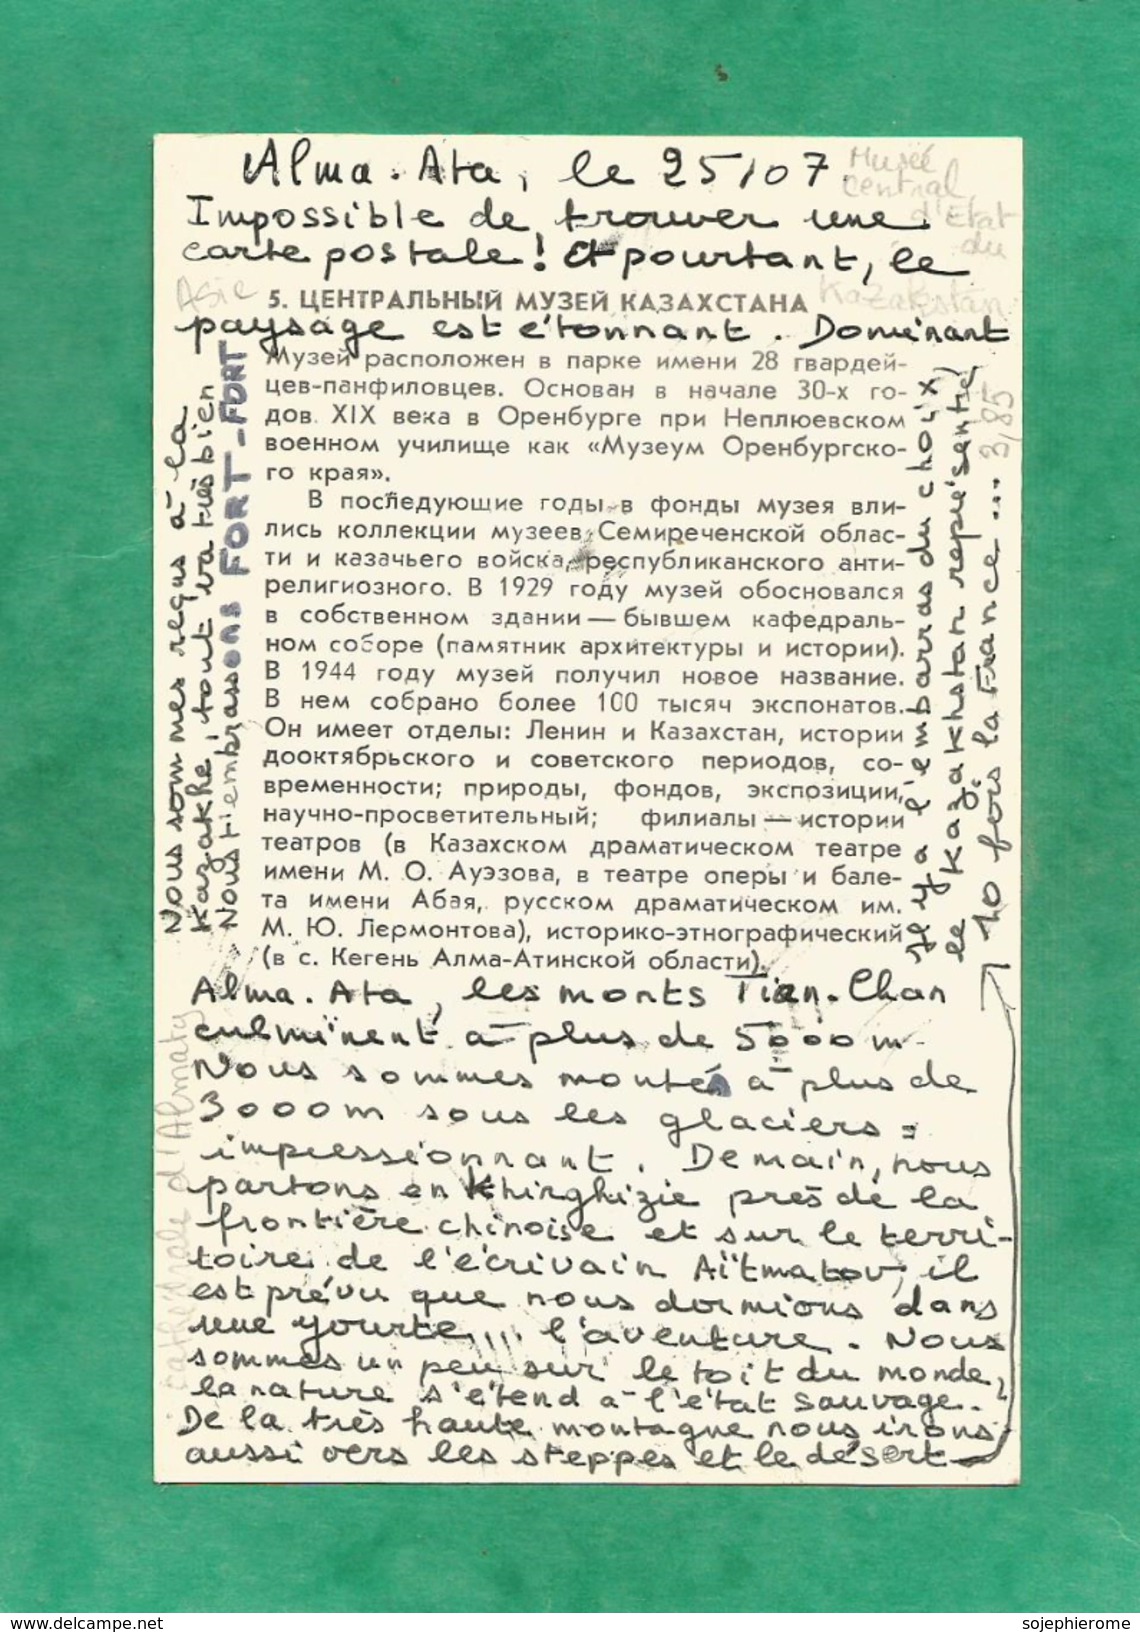 Alma-Ata, le 25/07.
Impossible de trouver une
carte postale ! Et pourtant, le
Musée
central
d'Etat
du
Kazakstan
Asie
5. ЦЕНТРАЛЬНЫЙ МУЗЕЙ КАЗАХСТАНА
paysage est étonnant. Dominant
Музей расположен в парке имени 28 гвардей-
цев-панфиловцев. Основан в начале 30-х го-
дов XIX века в Оренбурге при Неплюевском
военном училище как «Музеум Оренбургско-
го края».
В последующие годы в фонды музея вли-
лись коллекции музеев Семиреченской облас-
ти и казачьего войска, республиканского анти-
религиозного. В 1929 году музей обосновался
в собственном здании — бывшем кафедраль-
ном соборе (памятник архитектуры и истории).
В 1944 году музей получил новое название.
В нем собрано более 100 тысяч экспонатов.
Он имеет отделы: Ленин и Казахстан, истории
дооктябрьского и советского периодов, со-
временности; природы, фондов, экспозиции,
научно-просветительный; филиалы — истории
театров (в Казахском драматическом театре
имени М. О. Ауэзова, в театре оперы и бале-
та имени Абая, русском драматическом им.
М. Ю. Лермонтова), историко-этнографический
(в с. Кегень Алма-Атинской области).
Alma-Ata, les monts Tian-Chan
culminent à plus de 5000 m.
Nous sommes montés à plus de
3000 m sous les glaciers =
impressionnant. Demain, nous
partons en Khirghizie près de la
frontière chinoise et sur le terri-
toire de l'écrivain Aïtmatov, il
est prévu que nous dormions dans
une yourte... l'aventure. Nous
sommes un peu sur le toit du monde,
la nature s'étend à l'état sauvage.
De la très haute montagne nous irons
aussi vers les steppes et le désert
Il y a l'embarras du choix,
le Kazakhstan représente
10 fois la France...
3,85
Nous sommes reçus à la
Kazakhe, tout va très bien
Nous t'embrassons FORT-FORT
cathédrale d'Almaty
delcampe.net
sojephierome